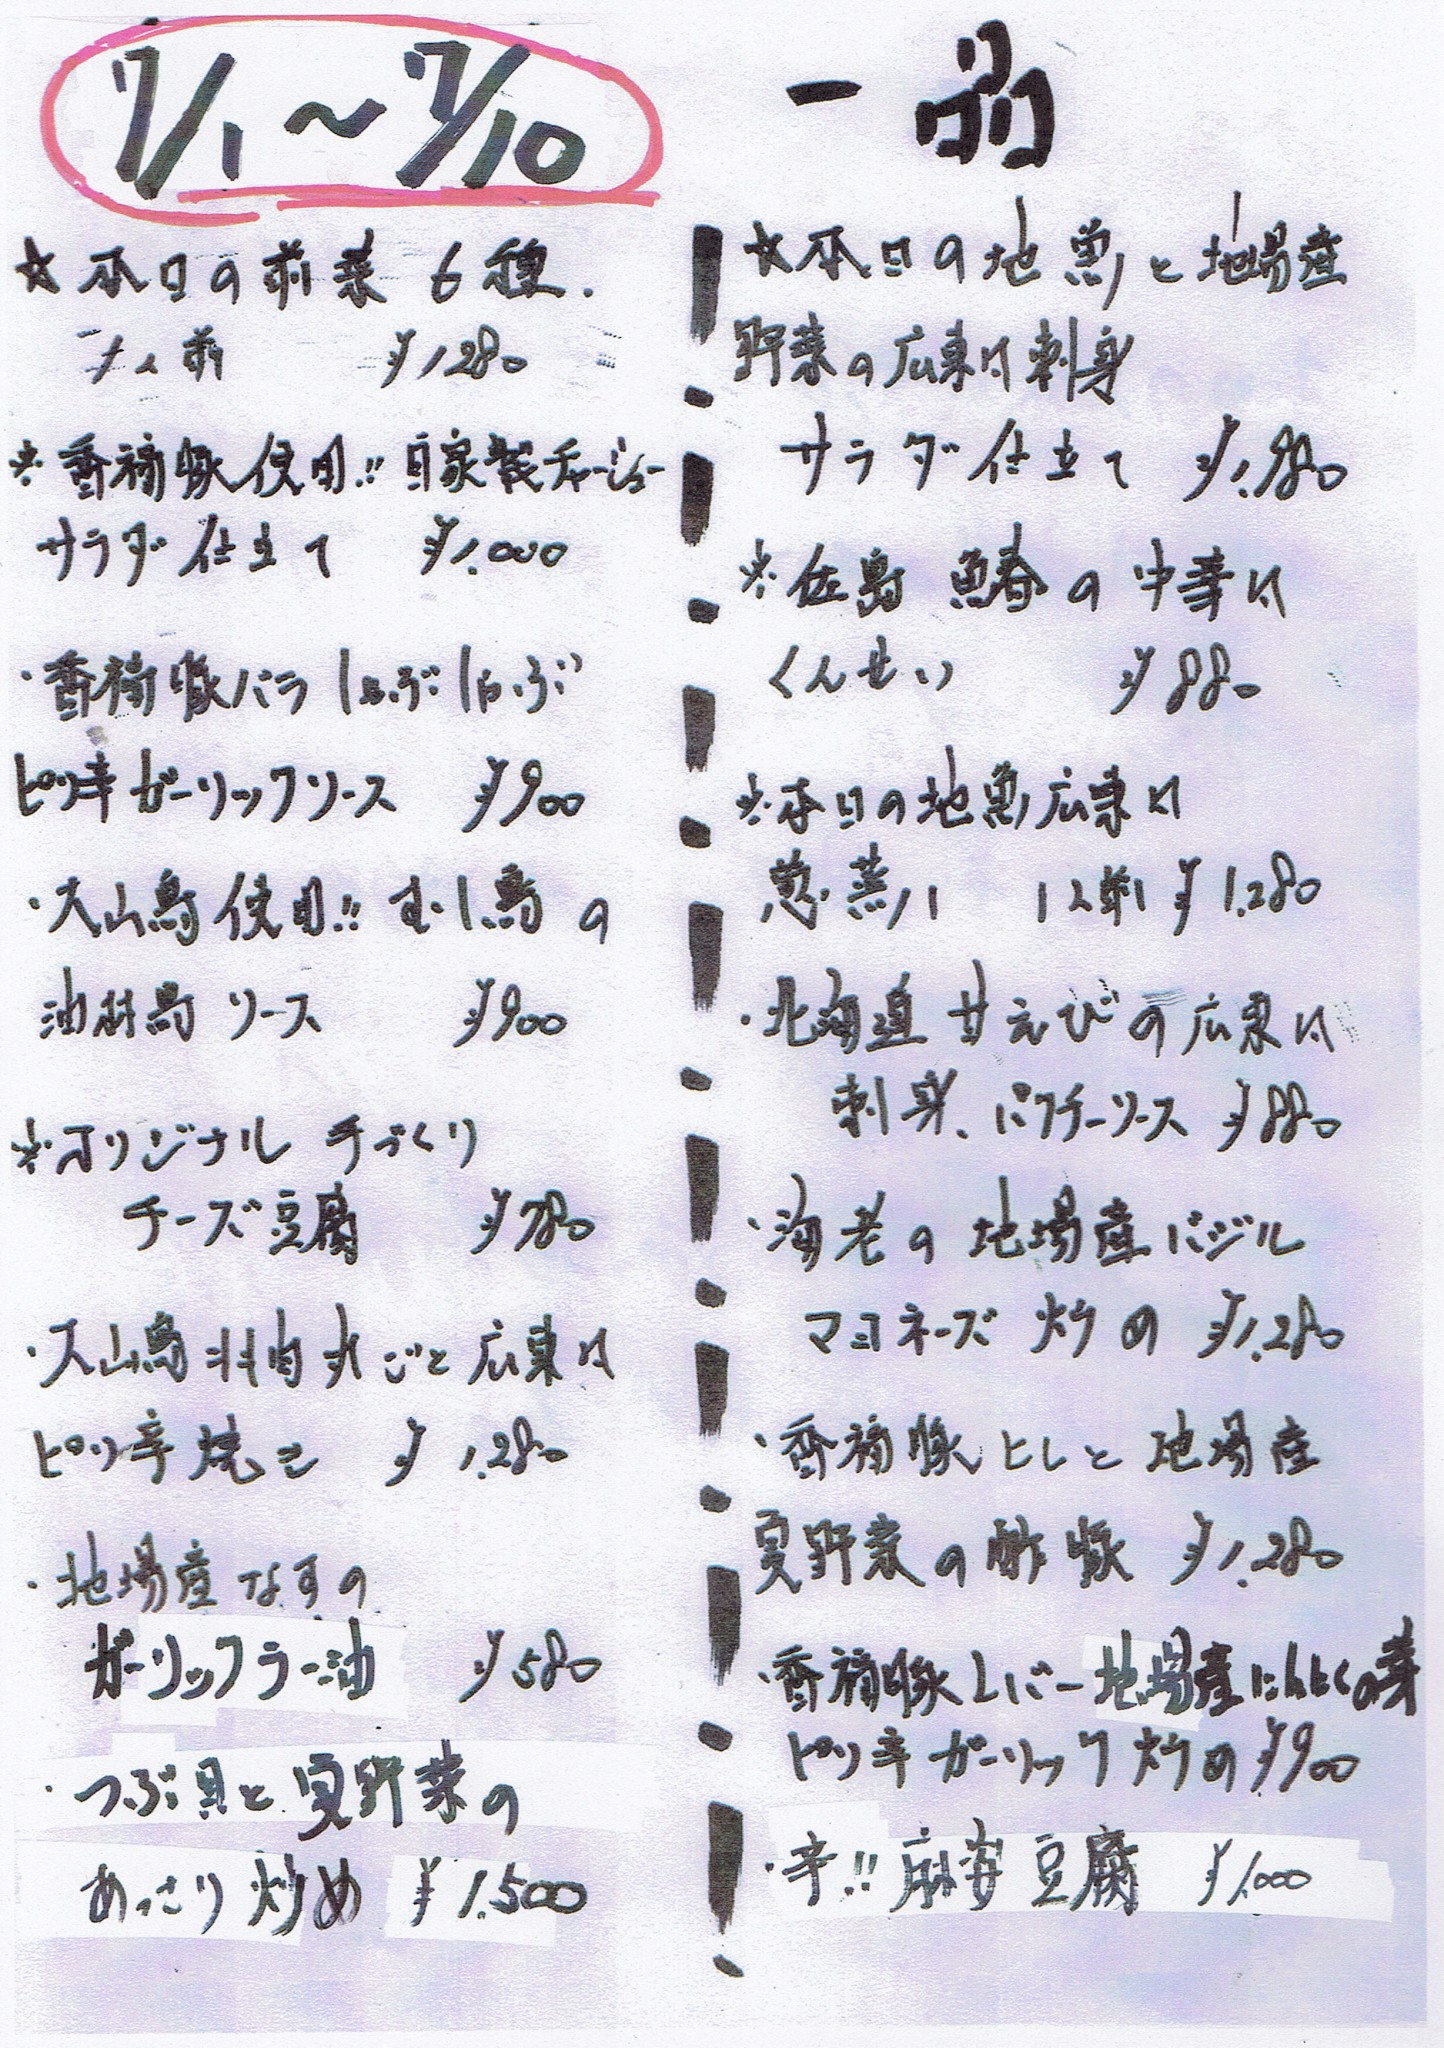 7/1～7/10
一品
☆本日の前菜 6種.
1人前 ¥1280
※香福豚使用!!自家製チャーシュー
サラダ仕立て ¥1.000
・香福豚バラしゃぶしゃぶ
ピリ辛ガーリックソース ¥900
・大山鳥使用!!むし鳥の
油淋鳥ソース ¥900
※オリジナル 手づくり
チーズ豆腐 ¥780
・大山鳥 肉丸ごと広東風
ピリ辛焼き ¥1.280
・地場産なすの
ガーリックラー油 ¥580
・つぶ貝と夏野菜の
あっさり炒め ¥1.500
☆本日の地魚と地場産
野菜の広東風刺身
サラダ仕立て ¥1.980
※佐島 鰆の中華風
くんせい ¥880
※本日の地魚広東風
葱蒸し 1人前¥1.280
・北海道甘えびの広東風
刺身、パクチーソース ¥880
・海老の地場産バジル
マヨネーズ炒め ¥1.280
・香福豚ヒレと地場産
夏野菜の酢豚 ¥1.280
・香福豚レバー地場産にんにくの芽
ピリ辛ガーリック炒め¥900
・辛!!麻婆豆腐 ¥1.000